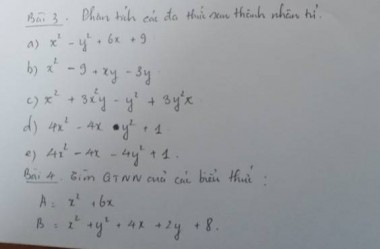 Bài 3. Phân tích các đa thức sau thành nhân tử.
a) x² - y² + 6x + 9
b) x² - 9 + xy - 3y
c) x² + 3x²y - y² + 3y²x
d) 4x² - 4x • y² + 1
e) 4x² - 4x - 4y² + 1.
Bài 4. Tìm GTNN của các biểu thức :
A = x² + 6x
B = x² + y² + 4x + 2y + 8.